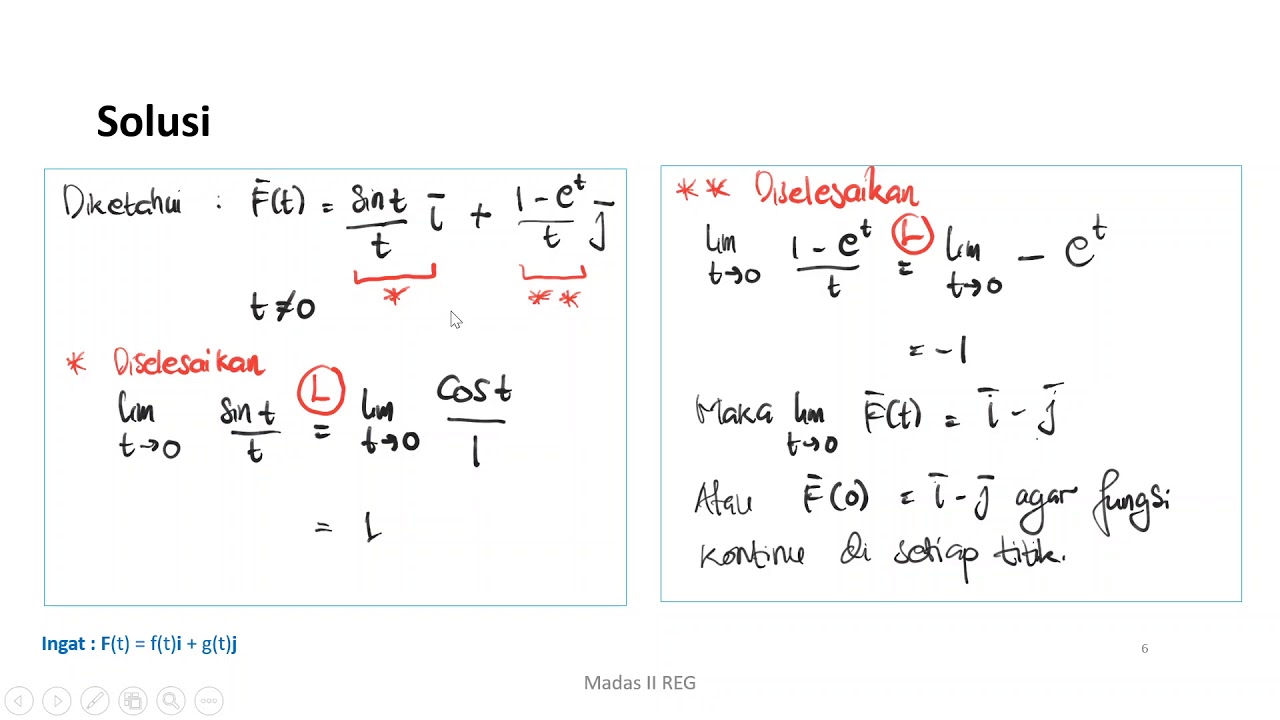 Solusi
Diketahui : F̄(t) = sin t / t ī + 1 - e^t / t j̄
* **
t ≠ 0
* Diselesaikan
lim t→0 sin t / t (L) = lim t→0 cos t / 1
= 1
** Diselesaikan
lim t→0 1 - e^t / t (L) = lim t→0 - e^t
= -1
Maka lim t→0 F̄(t) = ī - j̄
Atau F̄(0) = ī - j̄ agar fungsi
kontinu di setiap titik.
Ingat : F(t) = f(t)i + g(t)j
6
Madas II REG